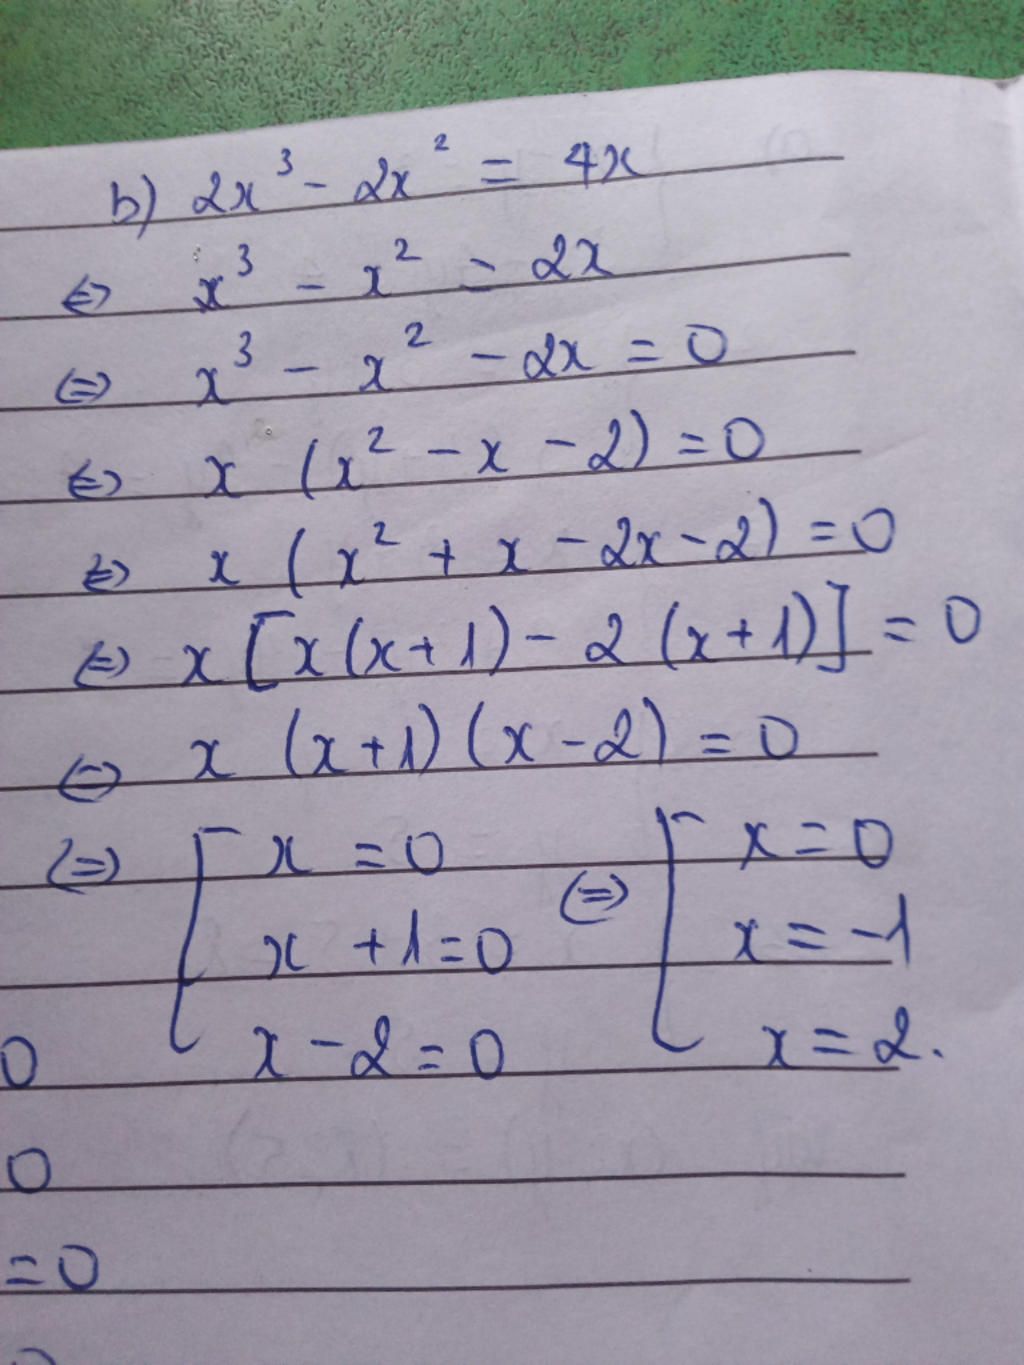 b) 2x³ - 2x² = 4x
⇔ x³ - x² = 2x
⇔ x³ - x² - 2x = 0
⇔ x (x² - x - 2) = 0
⇔ x (x² + x - 2x - 2) = 0
⇔ x [x(x+1) - 2 (x+1)] = 0
⇔ x (x+1) (x-2) = 0
⇔ [ x = 0 ⇔ [ x = 0
x + 1 = 0 x = -1
x - 2 = 0 x = 2.
0
0
= 0